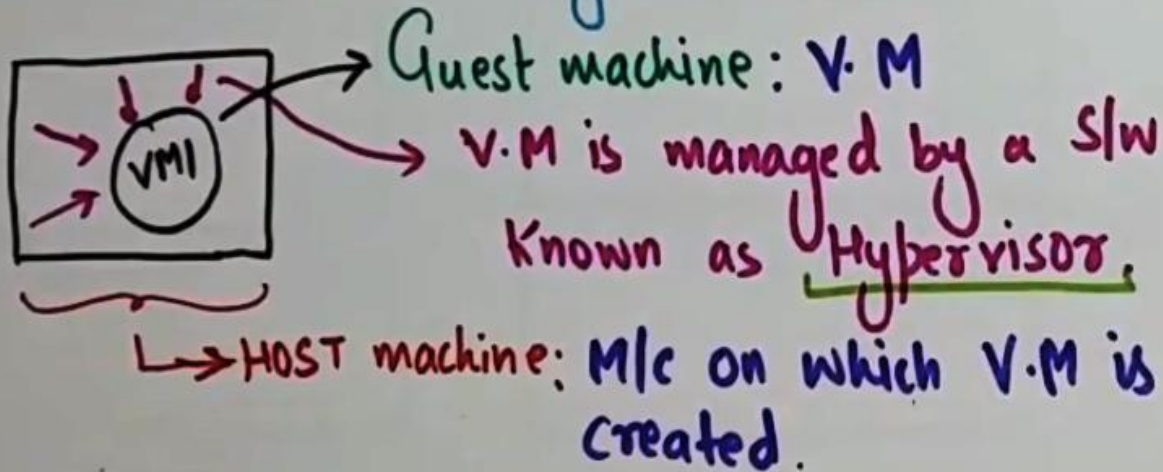 Guest machine: V.M
VM1
V.M is managed by a S/W
Known as Hypervisor.
HOST machine: M/c on which V.M is
created.